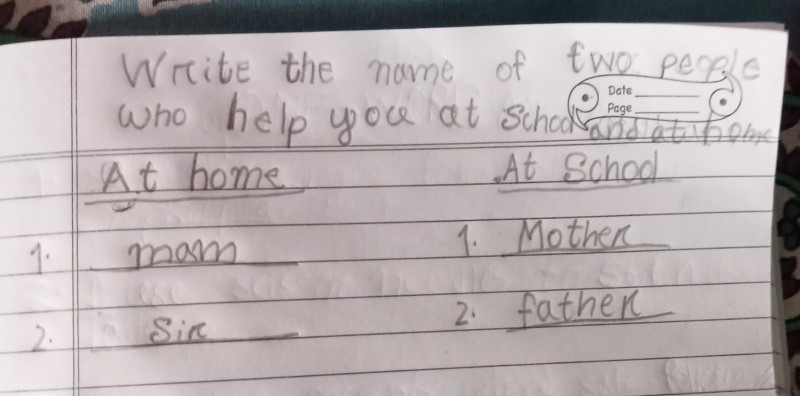 Write the name of two people
Date
Page
who help you at school and at home
At home At School
1. mam 1. Mother
2. Sir 2. father